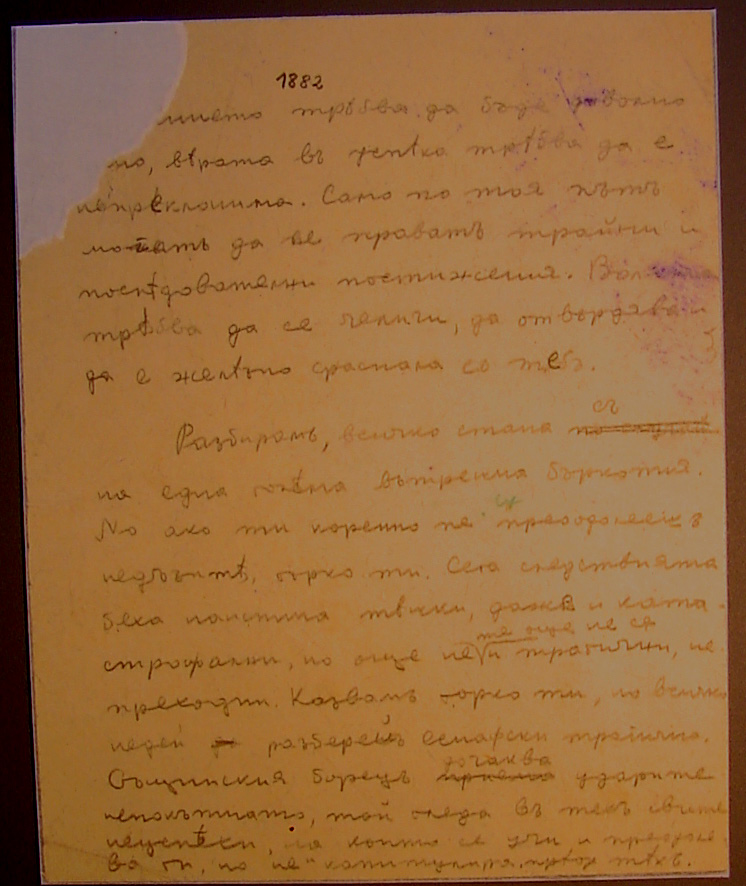 1882
нието трѣбва да бѫде доволно
но, вѣрата въ успѣха трѣбва да е
непрѣклонима. Само по тоя пѫть
могатъ да се правятъ трайни и
послѣдователни постижения.
трѣбва да се каличи, да отвърдява и
да е желѣзно сраснала со тебъ.
съ
Разбирамъ, всичко стана
на една голѣма вѫтрешна бъркотия.
Но ако ти коренно не преодолеешъ
недѫзитѣ, горко ти. Сега следствията
беха наистина тѣжки, даже и ката-
те още не са
строфални, но още не и трагични, не
преходни. Казвамъ горко ти, но всичко
недей разберешъ еснафски трагично.
дочаква
Същинския борецъ ударите
непокѫтнато, той гледа въ техъ своите
неуспѣхи, на които се учи и преодоле-
ва ги, но не капитулира предъ тѣхъ.